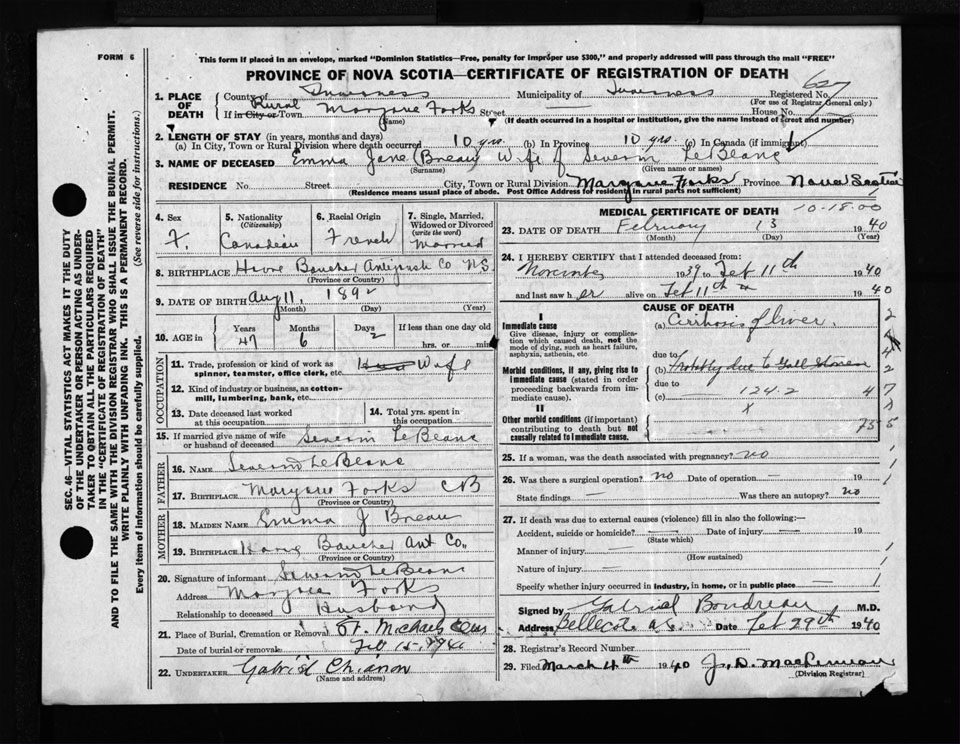 FORM 6
This form if placed in an envelope, marked "Dominion Statistics—Free, penalty for improper use $300," and properly addressed will pass through the mail "FREE"
PROVINCE OF NOVA SCOTIA—CERTIFICATE OF REGISTRATION OF DEATH
1. PLACE OF DEATH
County of Inverness Municipality of Inverness Registered No.
(For use of Registrar General only)
If in City or Town Rural Margaree Forks Street House No.
(Name) (If death occurred in a hospital or institution, give the name instead of street and number)
2. LENGTH OF STAY (in years, months and days)
(a) In City, Town or Rural Division where death occurred 10 yrs. (b) In Province 10 yrs. (c) In Canada (if immigrant)
3. NAME OF DECEASED Emma Jane (Breau) Wife of Severin LeBlanc
(Surname) (Given name or names)
RESIDENCE No. Street City, Town or Rural Division Margaree Forks Province Nova Scotia
(Residence means usual place of abode. Post Office Address for residents in rural parts not sufficient)
4. Sex F.
5. Nationality (Citizenship) Canadian
6. Racial Origin French
7. Single, Married, Widowed or Divorced (write the word) Married
8. BIRTHPLACE Havre Boucher Antigonish Co N.S.
(Province or Country)
9. DATE OF BIRTH Aug 11, 1892
(Month) (Day) (Year)
10. AGE in Years 47 Months 6 Days 2 If less than one day old hrs. or min.
OCCUPATION
11. Trade, profession or kind of work as spinner, teamster, office clerk, etc. Wife
12. Kind of industry or business, as cotton-mill, lumbering, bank, etc.
13. Date deceased last worked at this occupation
14. Total yrs. spent in this occupation
15. If married give name of wife or husband of deceased Severin LeBlanc
FATHER
16. NAME Severin LeBlanc
17. BIRTHPLACE Margaree Forks CB
(Province or Country)
MOTHER
18. MAIDEN NAME Emma J Breau
19. BIRTHPLACE Boucher Ant Co.
(Province or Country)
20. Signature of informant Severin LeBlanc
Address Margaree Forks
Relationship to deceased Husband
21. Place of Burial, Cremation or Removal St. Michaels Cem
Date of burial or removal Feb 15, 1940
22. UNDERTAKER Gabriel
(Name and address)
MEDICAL CERTIFICATE OF DEATH
10-18.00
23. DATE OF DEATH February 13 1940
(Month) (Day) (Year)
24. I HEREBY CERTIFY that I attended deceased from:
November 1939 to Feb 11th 1940
and last saw her alive on Feb 11th 1940
CAUSE OF DEATH
I
Immediate cause
Give disease, injury or complication which caused death, not the mode of dying, such as heart failure, asphyxia, asthenia, etc
(a) Cirrhosis of liver.
due to
Morbid conditions, if any, giving rise to immediate cause (stated in order proceeding backwards from immediate cause).
(b) Probably due to Gall Stones
due to
(c) 124.2
II
Other morbid conditions (if important) contributing to death but not causally related to immediate cause.
25. If a woman, was the death associated with pregnancy? no
26. Was there a surgical operation? no Date of operation — 19
State findings — Was there an autopsy? no
27. If death was due to external causes (violence) fill in also the following:—
Accident, suicide or homicide? — Date of injury — 19
(State which)
Manner of injury —
(How sustained)
Nature of injury —
Specify whether injury occurred in industry, in home, or in public place —
Signed by Gabriel Boudreau M.D.
Address Bellecote Date Feb 29th 1940
28. Registrar's Record Number
29. Filed March 4th 1940 J. D. MacLennan
(Division Registrar)
SEC. 46—VITAL STATISTICS ACT MAKES IT THE DUTY
OF THE UNDERTAKER OR PERSON ACTING AS UNDERTAKER TO OBTAIN ALL THE PARTICULARS REQUIRED
IN THE "CERTIFICATE OF REGISTRATION OF DEATH"
AND TO FILE THE SAME WITH THE DIVISION REGISTRAR WHO SHALL ISSUE THE BURIAL PERMIT.
WRITE PLAINLY WITH UNFADING INK. THIS IS A PERMANENT RECORD.
Every item of information should be carefully supplied. (See reverse side for instructions.)